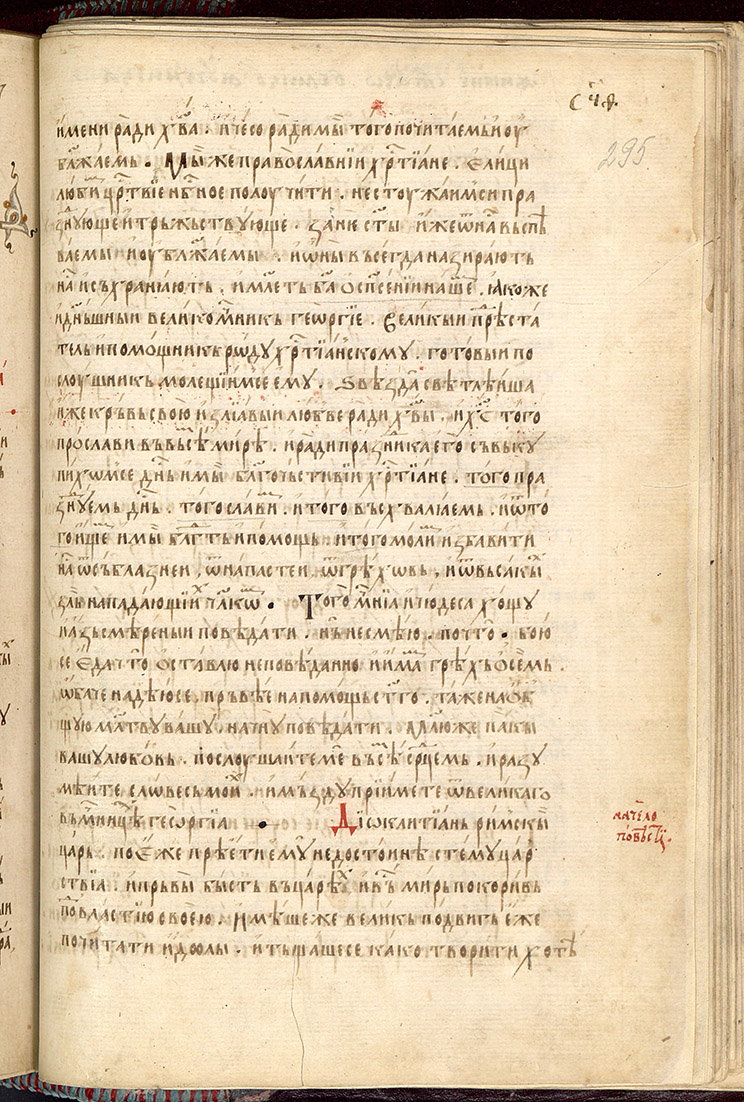 с҃ч҃ѳ.
295.
имени ради хв҃а. и чесо ради мы того почитаемь и оу
бл҃жаемь. Мы же православнїи хрⷭ҇тїане. Елици
любищ црⷭ҇твїе нбⷭ҇ное полоучити. не стоужаимси пра
знующе и трьжьствующе. зане ст҃ы иже ѿ на҇ въспѣ
ваемы и оублжⷶаемы. и ѡны въсегда назирають
на҇ и съхраняють. имлеть бг҃а о спⷭ҇сенїи наше. Iакоже
и дн҃ьшныи великомч҃никь геѡргїе. Великыи прѣⷣста
тель и помощникь рѡду хрⷭ҇тїаньскому. готовыи по
слоушникь молещїимсе ему. Ѕвѣзда свѣтлѣиша
иже кръвь свою излїавыи любве ради хв҃ы. и хⷭ҇ того
прослави въ вьсѣⷨ мирѣ. и ради празⷣника его съвьку
пихѡмсе дн҃ьⷭ имы благочьстивїи хрⷭ҇тїане. того пра
знуемь дн҃ьⷭ. того славиⷨ. и того въсхваляемь. и ѿ то
го ище имы блгⷣть и помощь. и того молиⷨ избавити
на҇ ѿ съблазнеи, ѿ напастеи, ѿ грѣхѡвь, и ѿ вьсакыⷯ
злѣ нападающїиⷯ чл҃кѡⷨ. Того мч҃нїа и чюдеса хощу
и азь смѣреныи повѣдати. нь не смѣю. почто. бою
се Еда что оставлю неповѣданно и имаⷨ грѣхь о семь.
ѡбаче надѣюсе, прьвѣе на помощь ст҃го. таже на ѡб
щую мл҃тву вашу. начну повѣдати. Млю же и вы
вашу любовь. послоушаите ме въ сѣⷨ срⷣцемь. и разу
мѣите слѡвеⷭ мои. и мъзду прїимете ѿ великаго
въ мч҃ницѣⷯ геѡргїа. Дїоклитїань римскы
царь. по Еже прѣети ему недостоинѣ стему цар
ствїа. и прьвы бысть въ царѣⷯ. и вⷭ҇ь мирь покоривь
поⷣ властїю своею. Имѣше же великь подвигь еже
почитати идѡлы. и тьщашесе како творити хотѣ
начело
повѣсти.